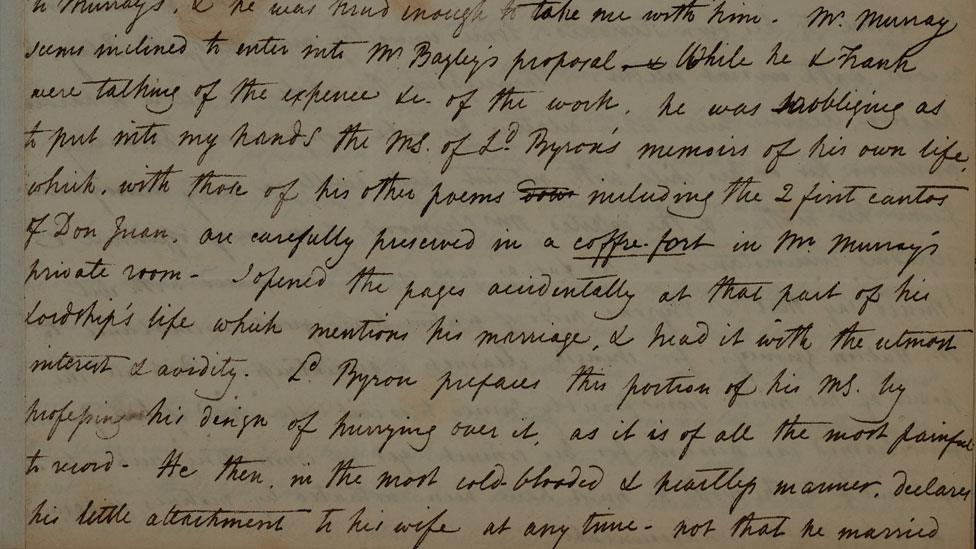 to Murray's, & he was kind enough to take me with him - Mr. Murray
seems inclined to enter into Mr Bagley's proposal - & While he & Frank
were talking of the expence &c. of the work, he was so obliging as
to put into my hands the MS. of Ld. Byron's memoirs of his own life,
which, with those of his other poems including the 2 first cantos
of Don Juan, are carefully preserved in a coffre-fort in Mr Murray's
private room - I opened the pages accidentally at that part of his
Lordship's life which mentions his marriage, & read it with the utmost
interest & avidity. Ld. Byron prefaces this portion of his MS. by
professing his design of hurrying over it, as it is of all the most painful
to record - He then, in the most cold-blooded & heartless manner, declares
his little attachment to his wife at any time - not that he married